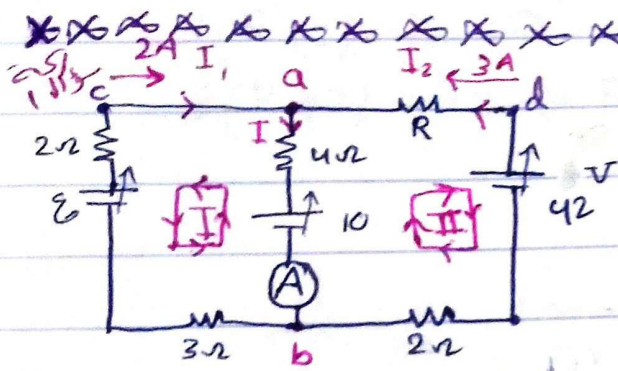 2A I₁ a I₂ 3A
c d
I R
2Ω 4Ω
ε I 10 II 42 V
A
3Ω b 2Ω